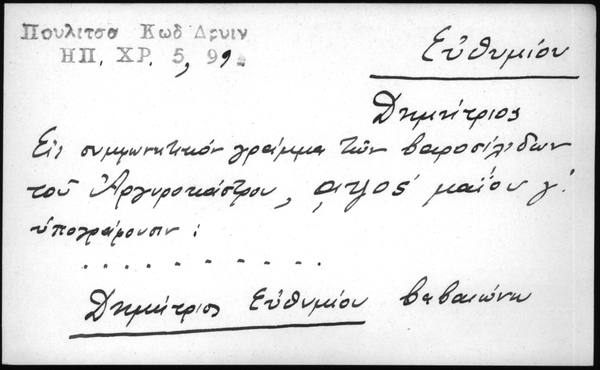 Πουλιτσα Κωδ Δρυιν
ΗΠ. ΧΡ. 5, 99.
Εὐθυμίου
Δημήτριος
Εἰς συμφωνητικόν γράμμα τῶν βαροσιλίδων
τοῦ Ἀργυροκάστρου, μαΐου γ΄.
ὑπογράφουσιν :
. . . . . . . . . . .
Δημήτριος Εὐθυμίου βεβαιώνω